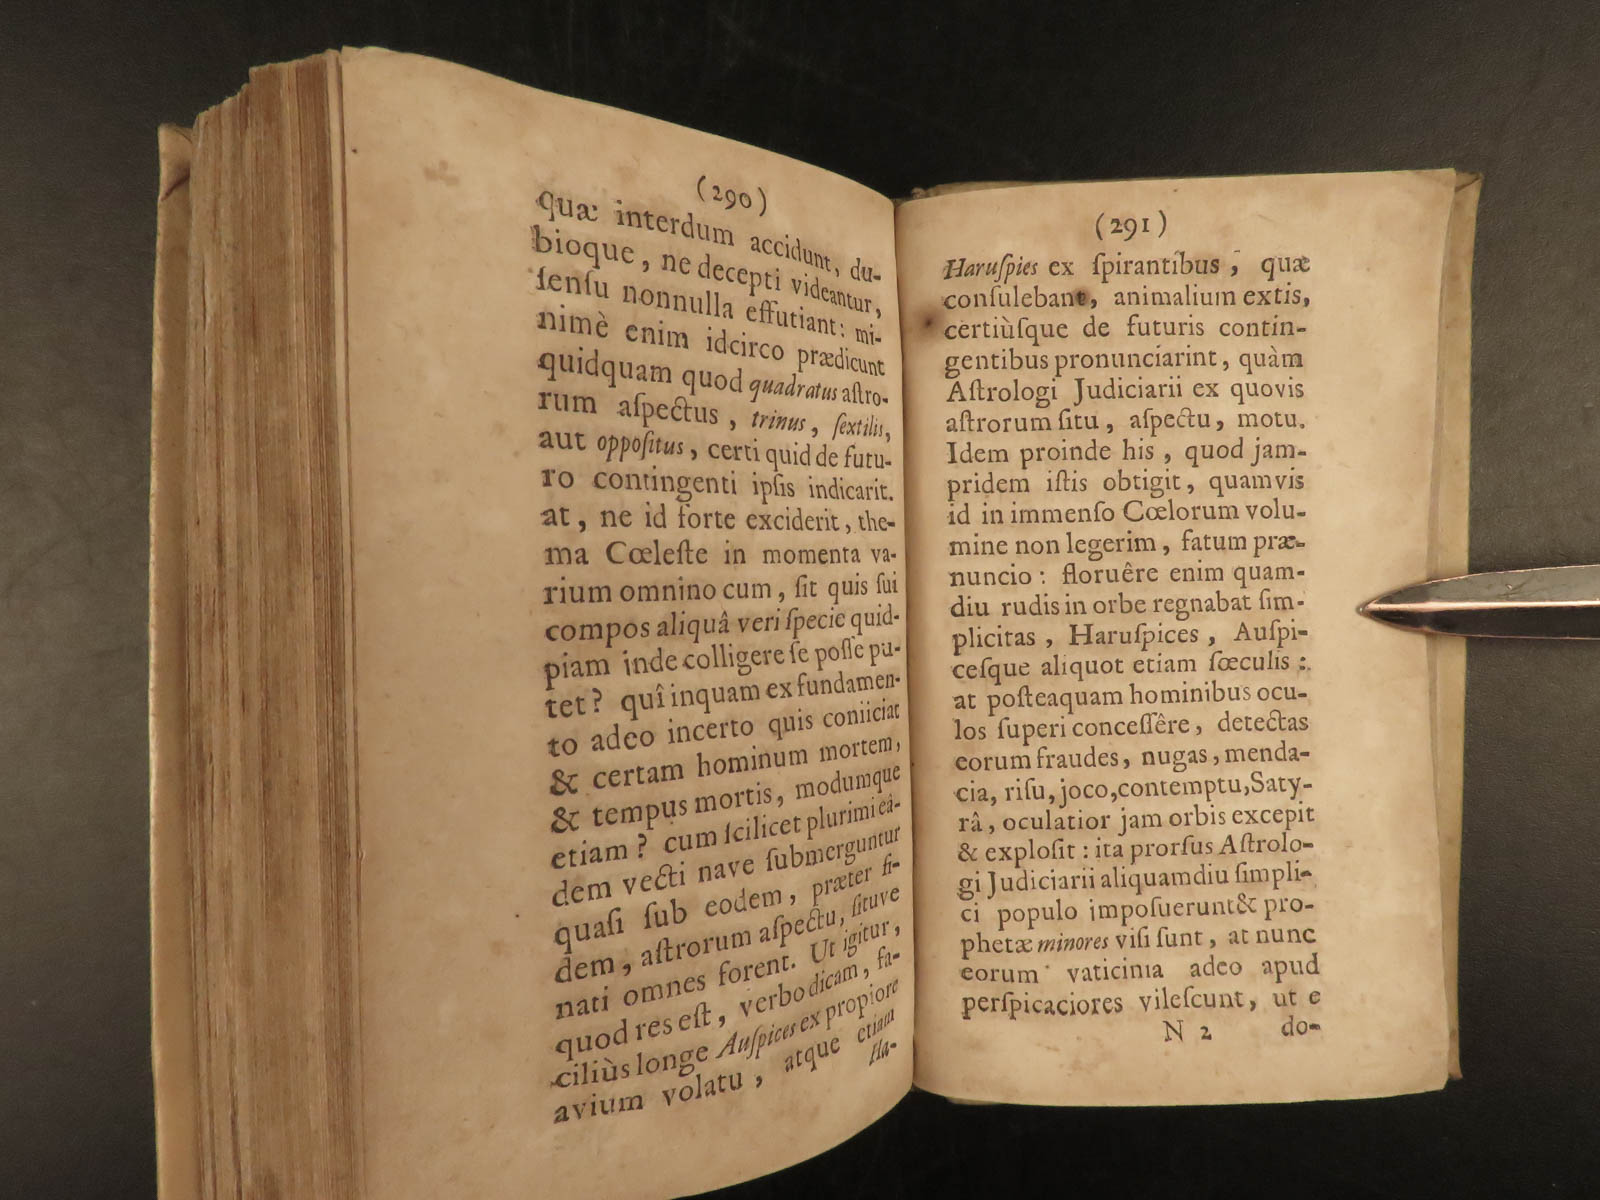 (290)
quæ interdum accidunt, du-
bioque, ne decepti videantur,
ſenſu nonnulla effutiant: mi-
nimè enim idcirco prædicunt
quidquam quod quadratus aſtro-
rum aſpectus, trinus, ſextilis,
aut oppoſitus, certi quid de futu-
ro contingenti ipſis indicarit.
at, ne id forte exciderit, the-
ma Cœleſte in momenta va-
rium omnino cum, ſit quis ſui
compos aliquâ veri ſpecie quid-
piam inde colligere ſe poſſe pu-
tet? quî inquam ex fundamen-
to adeo incerto quis coniiciat
& certam hominum mortem,
& tempus mortis, modumque
etiam? cum ſcilicet plurimi eâ-
dem vecti nave ſubmerguntur
quaſi ſub eodem, præter fi-
dem, aſtrorum aſpectu, ſituve
nati omnes forent. Ut igitur,
quod res eſt, verbo dicam, fa-
ciliùs longe Auſpices ex propiore
avium volatu, atque etiam
Ha-
(291)
Haruſpies ex ſpirantibus, quæ
conſulebant, animalium extis,
certiùſque de futuris contin-
gentibus pronunciarint, quàm
Aſtrologi Judiciarii ex quovis
aſtrorum ſitu, aſpectu, motu.
Idem proinde his, quod jam-
pridem iſtis obtigit, quamvis
id in immenſo Cœlorum volu-
mine non legerim, fatum præ-
nuncio: floruêre enim quam-
diu rudis in orbe regnabat ſim-
plicitas, Haruſpices, Auſpi-
ceſque aliquot etiam ſœculis:
at poſteaquam hominibus ocu-
los ſuperi conceſſêre, detectas
eorum fraudes, nugas, menda-
cia, riſu, joco, contemptu, Saty-
râ, oculatior jam orbis excepit
& exploſit: ita prorſus Aſtrolo-
gi Judiciarii aliquamdiu ſimpli-
ci populo impoſuerunt & pro-
phetæ minores viſi ſunt, at nunc
eorum vaticinia adeo apud
perſpicaciores vileſcunt, ut e
N 2 do-